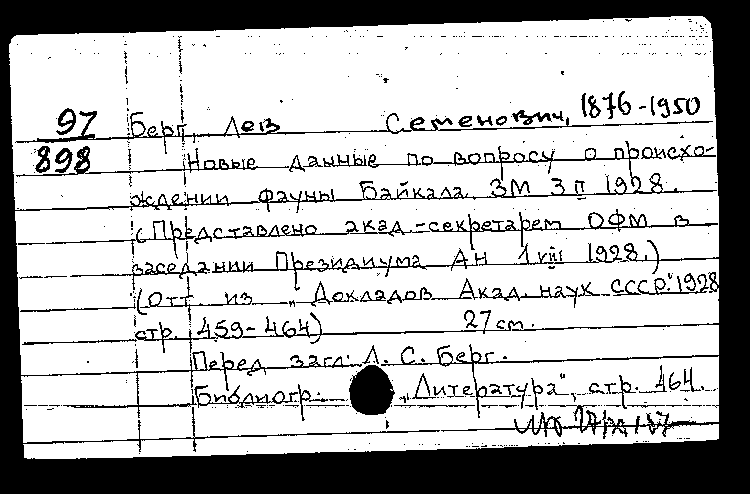 97 Берг, Лев Семенович, 1876-1950
898 Новые данные по вопросу о происхо-
ждении фауны Байкала. ЗМ 3 II 1928.
(Представлено акад.-секретарем ОФМ в
заседании Президиума АН 1 VIII 1928.)
(Отт. из "Докладов Акад. наук СССР." 1928
стр. 459-464) 27 см.
Перед загл: Л. С. Берг.
Библиогр. "Литература", стр. 464.